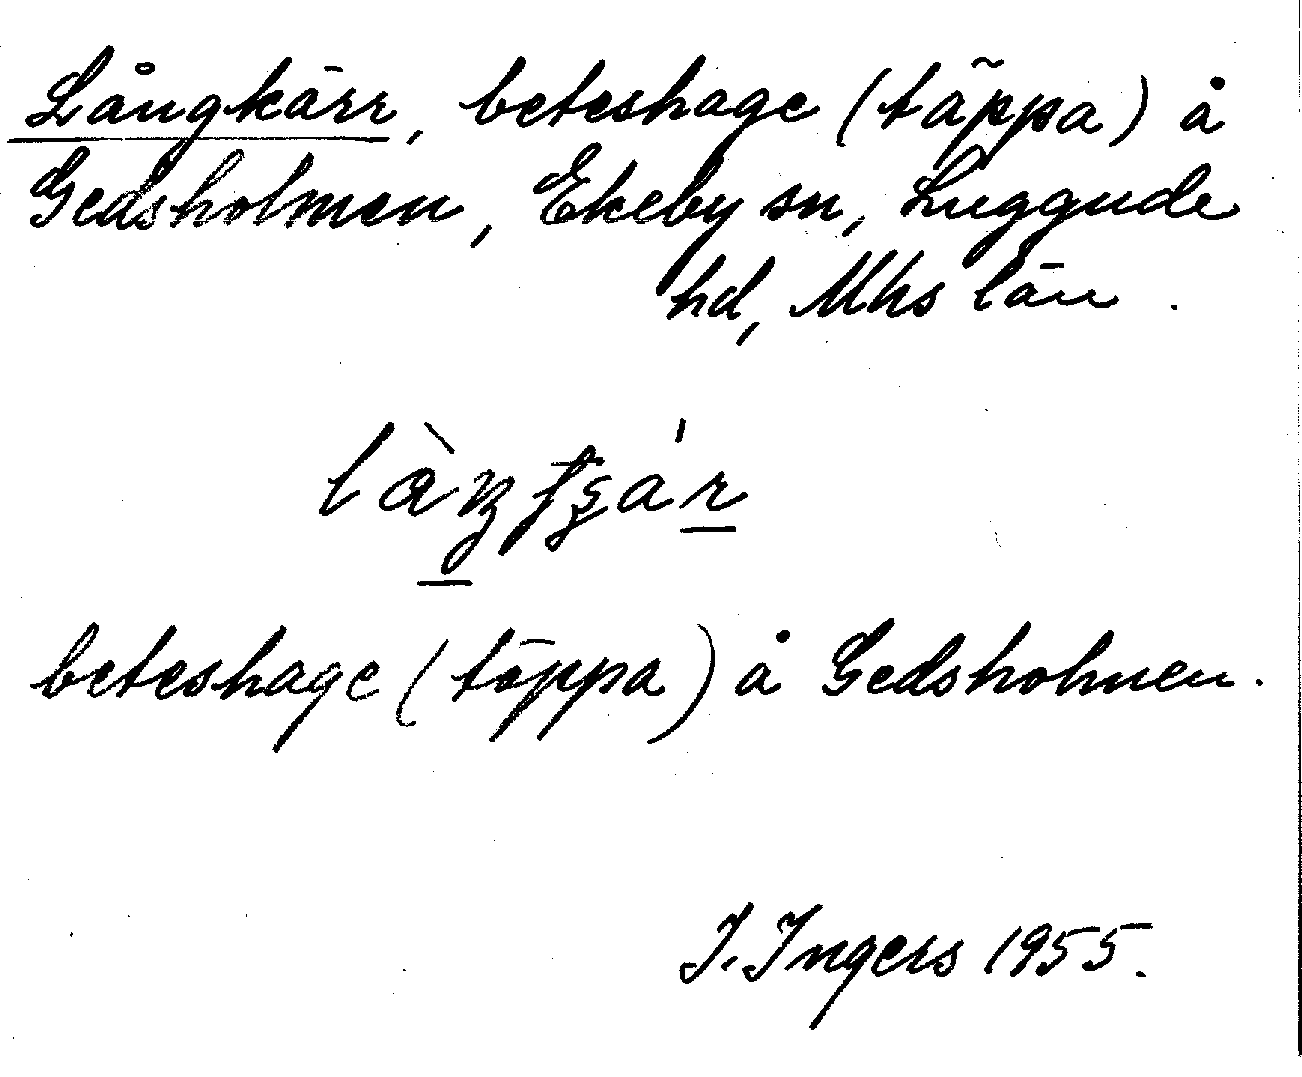 Långkärr, beteshage (täppa) å
Gedsholmen, Ekeby sn, Luggude
hd, Mhs län.
beteshage (täppa) å Gedsholmen.
I. Ingers 1955.